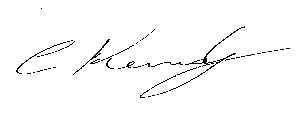 C Kennedy